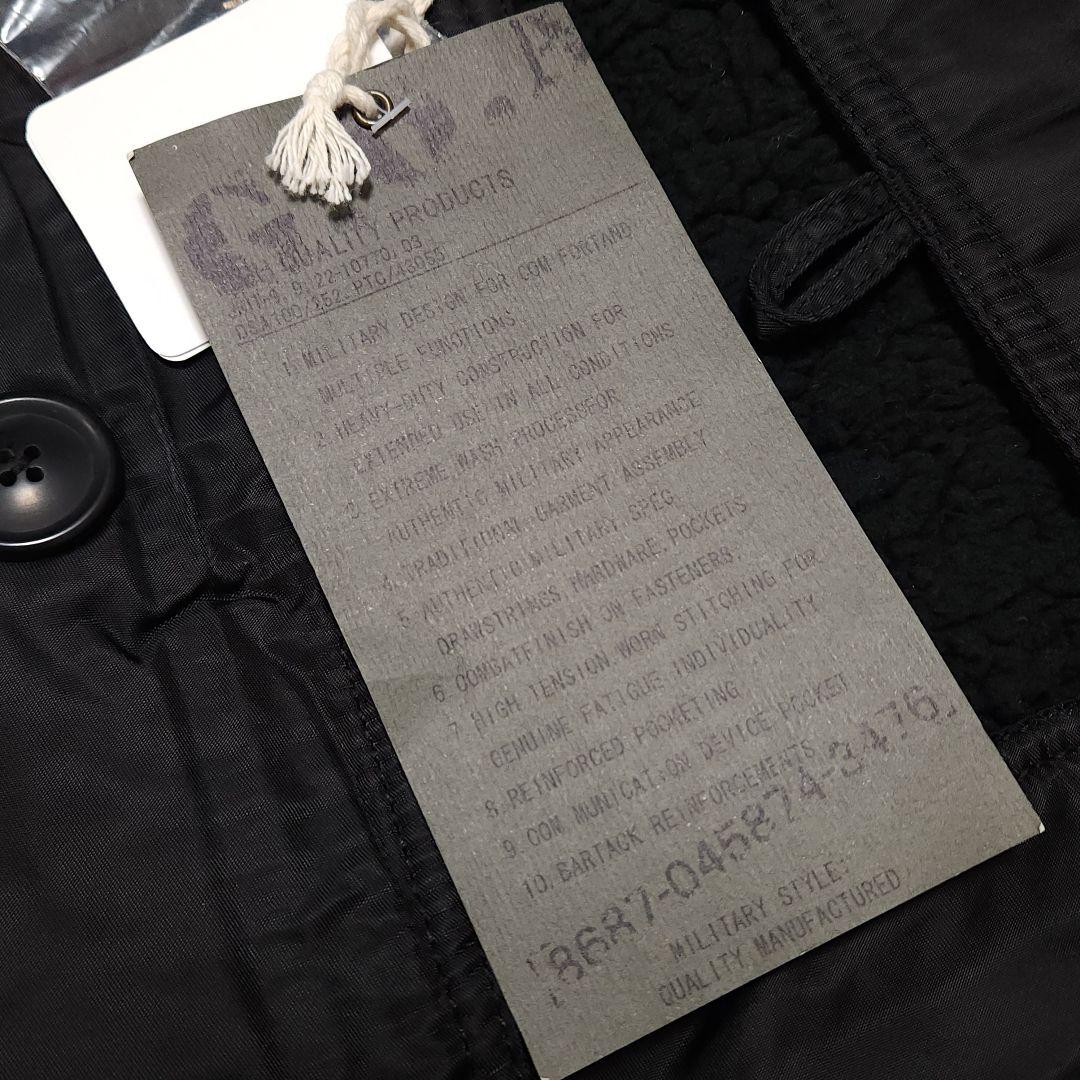 QUALITY PRODUCTS
22-10770.03
DSA100/252.PTC/43055
1. MILITARY DESIGN FOR COM FORTAND
MULTIPLE FUNCTIONS
2. HEAVY-DUTY CONSTRUCTION FOR
EXTENDED USE IN ALL CONDITIONS
3. EXTREME WASH PROCESSFOR
AUTHENTIC MILITARY APPEARANCE
4. TRADITIONAL GARMENT ASSEMBLY
5. AUTHENTIC MILITARY SPEC
DRAWSTRINGS HARDWARE, POCKETS
6. COMBATFINISH ON FASTENERS.
7. HIGH TENSION WORN STITCHING FOR
GENUINE FATIGUE INDIVIDUALITY
8. REINFORCED POCKETING
9. COM MUNICATION DEVICE POCKET
10. BARTACK REINFORCEMENTS
8687-045874-3476
MILITARY STYLE:
QUALITY MANUFACTURED